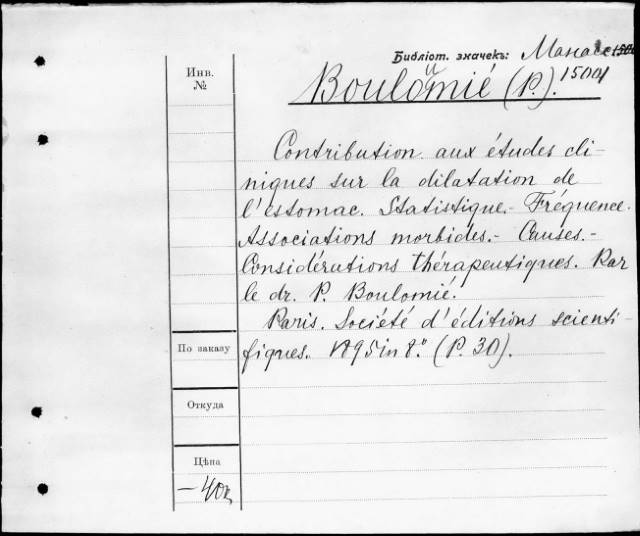 Библіот. значекъ: Манас
15001
Инв.
№
Boulomié (P.).
Contribution aux études cli-
niques sur la dilatation de
l'estomac. Statistique.- Fréquence.
Associations morbides.- Causes.-
Considérations thérapeutiques. Par
le dr. P. Boulomié.
Paris. Société d'éditions scienti-
fiques. 1895 in 8.° (P. 30).
По заказу
Откуда
Цѣна
— 40к